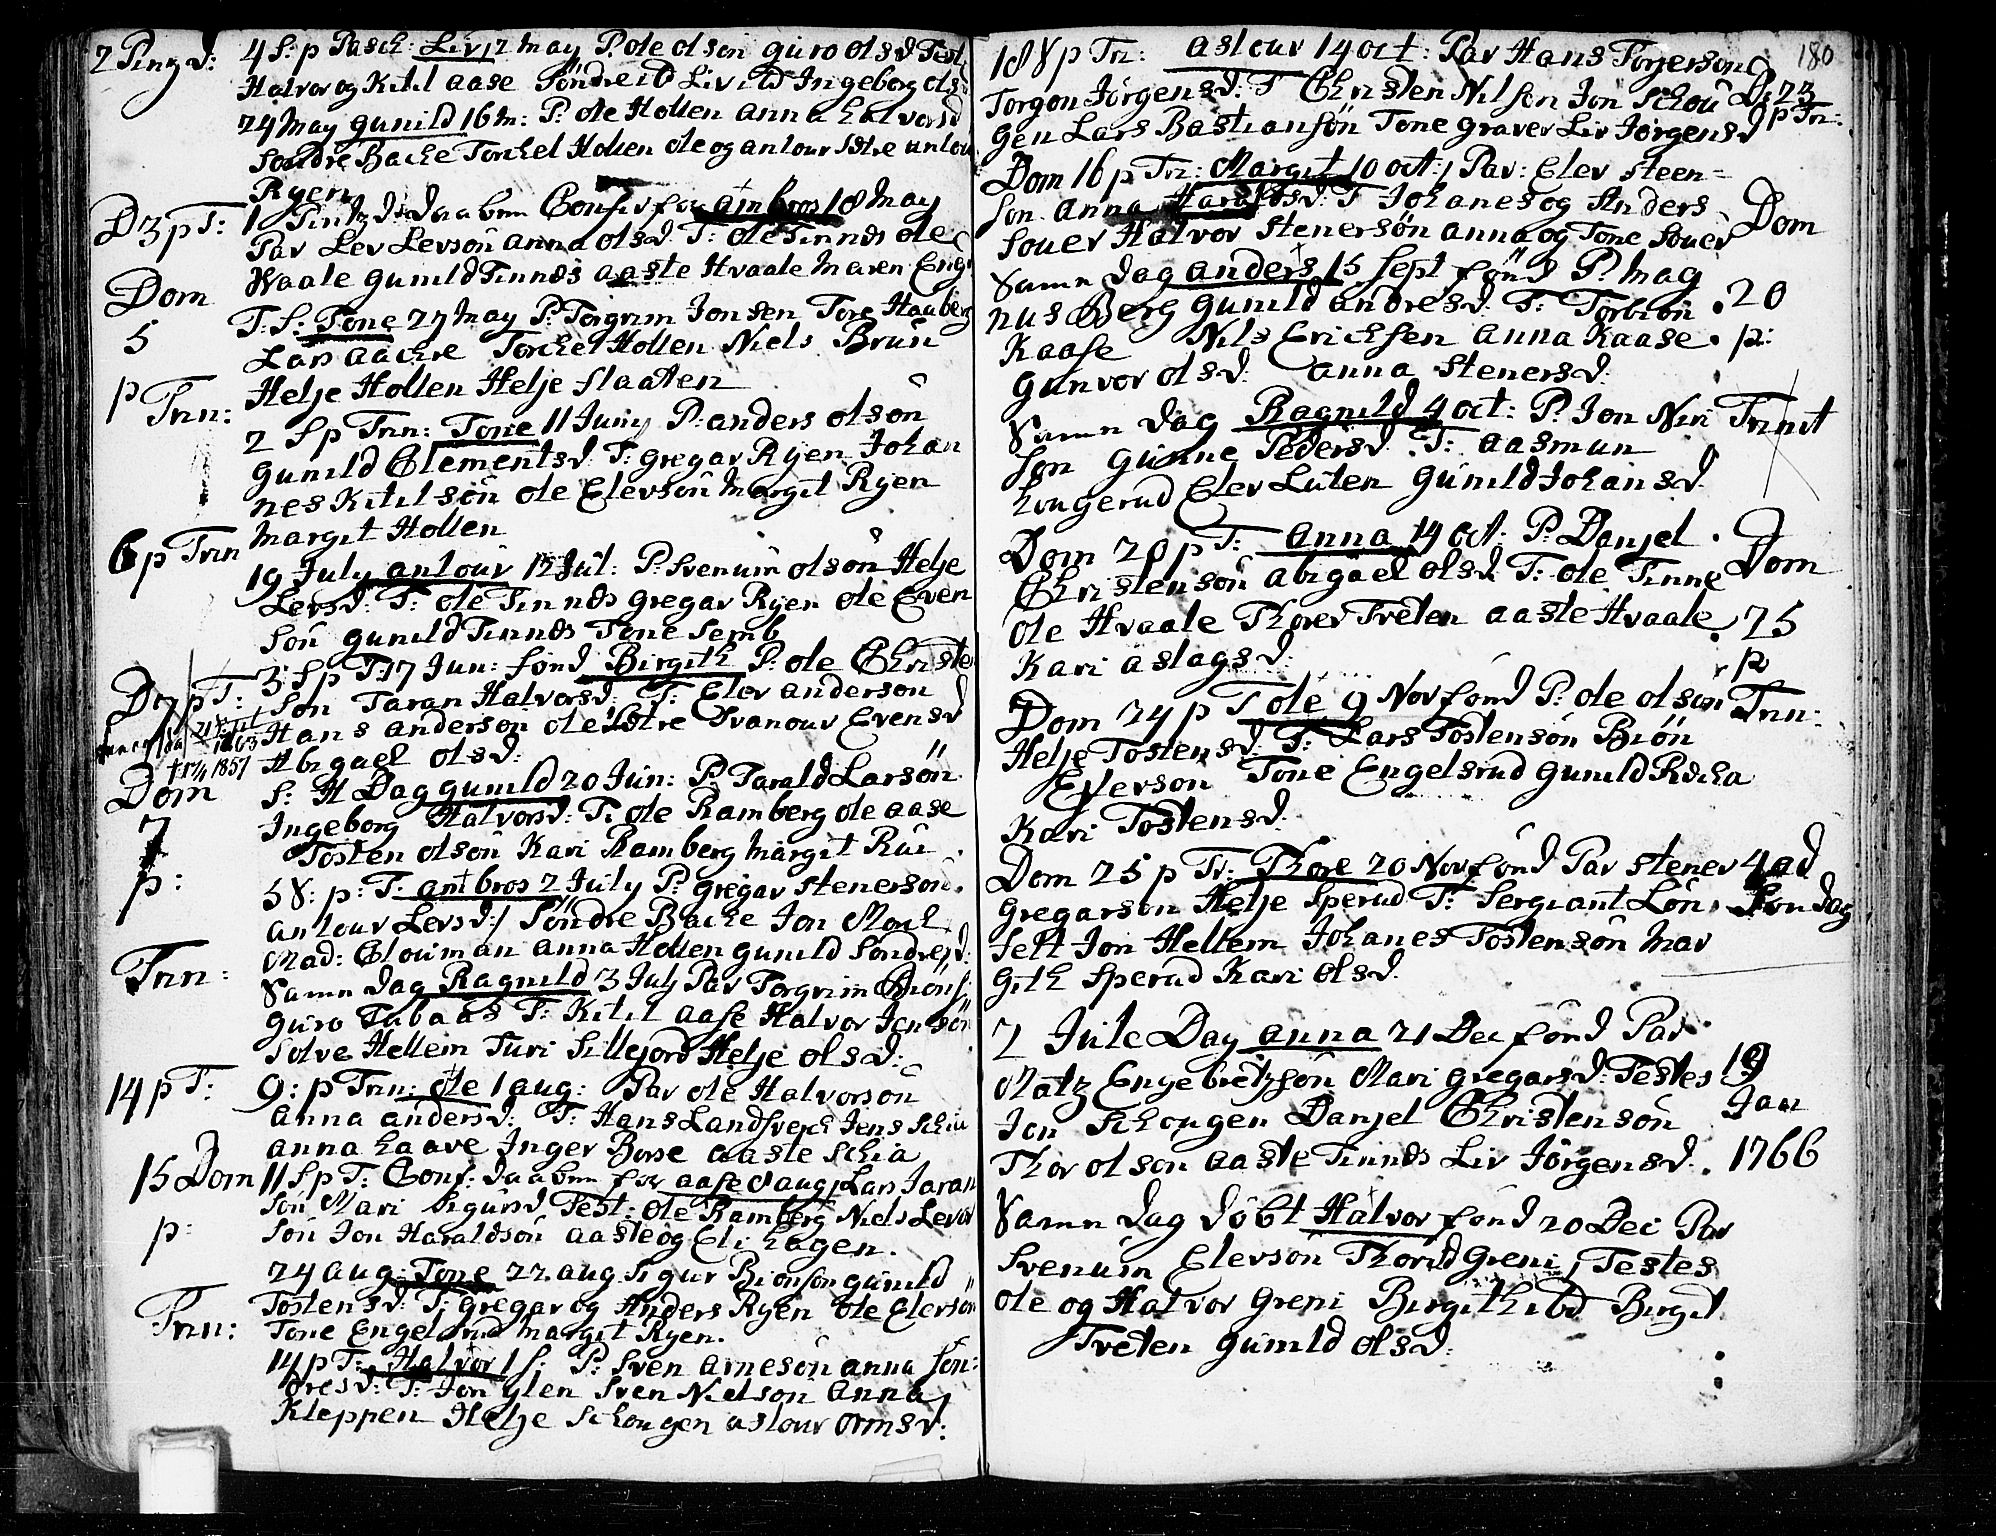 2 Pingd:
4 S: p Pasch: Liv 12 May P. Ole Olson Guro Olsd Test
Halvor og Kitil Aase Söndre id Liv Ingeborg Ols
24 May Gunild 16 m: P: Ole Hollen Anna Halvorsd
Söndre Bache Torchel Hollen Ole og Anlour Anlou
Ryen
D 3 p T:
1 Pintzd: daaben Confir for Ambros 18 May
Par Lev Levsön Anna Olsd T: Ole Tinnes Ole
Dom
Waale Gunild Tinnes Aaste Hvaale Maren Eng
T: S: Tone 27 May P: Torgrim Jonsen Tore Hauberg
5
Lars Aachre Torchel Hollen Niels Brun
p Trin:
Helje Hollen Helje Slaaten
2 S p Trin: Tone 11 Juny P: Anders Olson
Gunild Clementsd. T: Gregar Ryen Johan
nes Kitilsön Ole Elevsön Margit Ryen
Margit Hollen
6 p Trin
19 July Anlour 12 Jul: P: Svenum Olsön Helje
Levsd: T: Ole Tinnes Gregar Ryen Ole Even
Sön Gunild Tinnes Tone Semb
3 S p T: 17 Jun: född Birgith P: Ole Christe
D 7 p T:
Sön Taran Halvorsd: T: Elev Anderson
Hans Anderson Ole Svanour Evensd
† 1857
Abigael Olsd:
Dom
S: H Dag Gunild 20 Jun: P Tarald Larsön
Ingeborg Halvorsd: T: Ole Ramberg Ole Aase
7
Tosten Olsön Kari Ramberg Margit Rui
p:
5 S: p: T: Ambros 2 July P: Gregar Stenerson.
Anlour Levsd: / Söndre Bache Jon Moch
Mad: Clouman Anna Hollen Gunild Söndre
Trin:
Samn Dag Ragnild 3 July Par Torgrim Biöns
Guro Tubaas T: Kitil Aase Halvor Jonsön
Solve Hellem Turi Sillejord Helje Olsd:
14 p T:
9: p Trin: Ole 1 Aug: Par Ole Halvorsön
Anna Andersd: T: Hans Landsverch Jens Schia
Anna Haave Inger Borse Aaste Schia
15 Dom
11 S p T: Conf: daaben for Aase Aug Lars Jaran
Sön Mari Sigursd Test: Ole Ramberg Niels Levor
p:
Sön Jon Haraldsön Aaste og Eli Hagen.
24 Aug: Tone 22 Aug Sigur Bionson Gunild
Trin:
Tostensd: T: Gregar og Anders Ryen Ole Elevsön
Tone Engelsrud Margit Ryen.
14 p T: Halvor 1 S: P: Sven Arnesön Anna Jon=
dresd: T: Jon Glen Sven Nielson Anna
Kleppen Helje Schougen Aslour Ormsd:
180
18 S p Tr: Aslour 14 Oct: Par Hans Torjerson
Torgon Jörgensd: T Christen Nilson Jon Schou
D: 23
gen Lars Bastiansön Tone Graver Liv Jörgensd
p Tr:
Dom 16 p Tr: Margit 10 Oct:, Par: Elev Steen=
Son Anna Haraldsd: T Johanes og Anders
Dom
Souer Halvor Stenersön Anna og Tone Souer
Samn Dag Anders 15 Sept född P: Mag
nus Berg Gunild Andresd: T: Torbiön
20
Kaase Nils Erichsen Anna Kaase.
p:
Gunvor Olsd: Anna Stenersd:
Samn Dag Ragnild 4 Oct: P: Jon Niri
Trinit
Son Gunne Pedersd: T: Aasmun
Kongerud Elev Luten Gunild Johansd
Dom 20 p T: Anna 14 Oct: P: Danjel
Christensön Abigael Olsd: T: Ole Tinne
Dom
Ole Hvaale Thorer Tveten Aaste Hvaale
25
Kari Aslagsd:
p
Dom 24 p T Ole 9 Nov född P: Ole Olsön
Trin:
Helje Tostensd: T: Lars Tostensön Biön
Eyverson Tone Engelsrud Gunild Richa
Kari Tostensd:
Dom 25 p Tr: Thore 20 Nov född Par Stener
4 Ad
Gregarson Helje Sperud T: Sergiant Lön
Söndag
felt Jon Hellem Johanes Tostensön Mar
gith Sperud Kari Olsd:
2 Jule Dag Anna 21 Dec född Par
Matz Engebretzsön Mari Gregarsd: Testes
19
Jon Schougen Danjel Christensön
Jan
Thor Olson Aaste Tinnes Liv Jörgensd:.
1766
Samn Dag döbt Halvor född 20 Dec Par
Svenum Elevsön Thorild Greni / Testes
Ole og Halvor Greni Birgith ibd Birgit
Tveten Gunild Olsd: